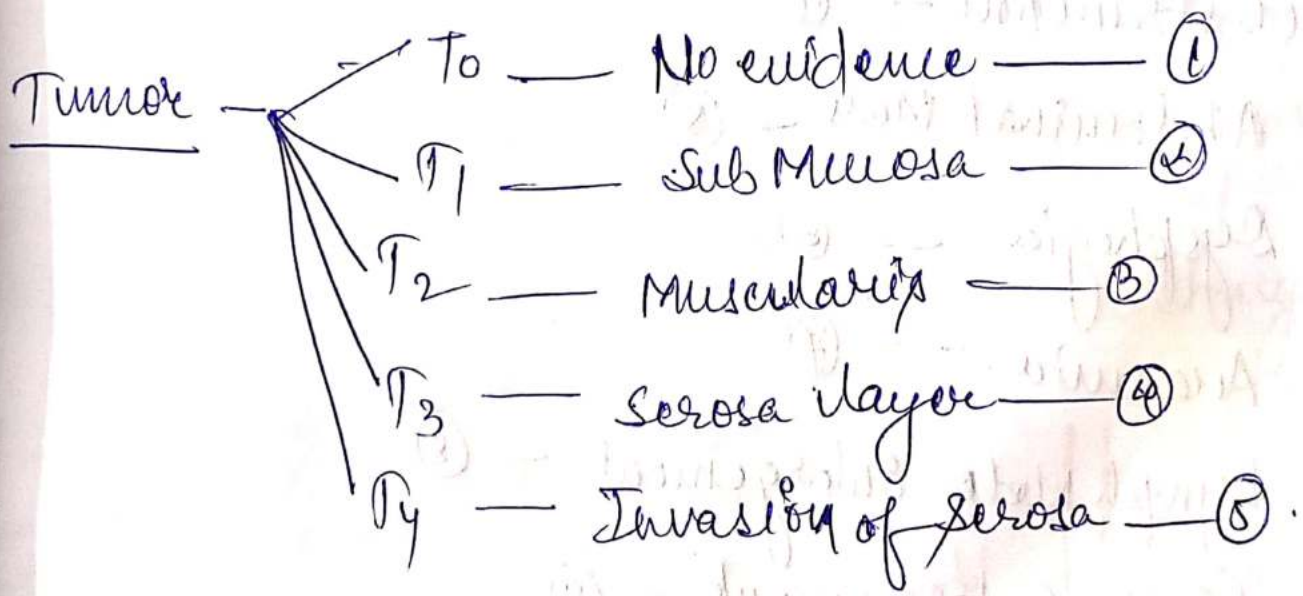 Tumor — T0 — No evidence — ①
T1 — Sub Mucosa — ②
T2 — Muscularis — ③
T3 — Serosa layer — ④
T4 — Invasion of serosa — ⑤.